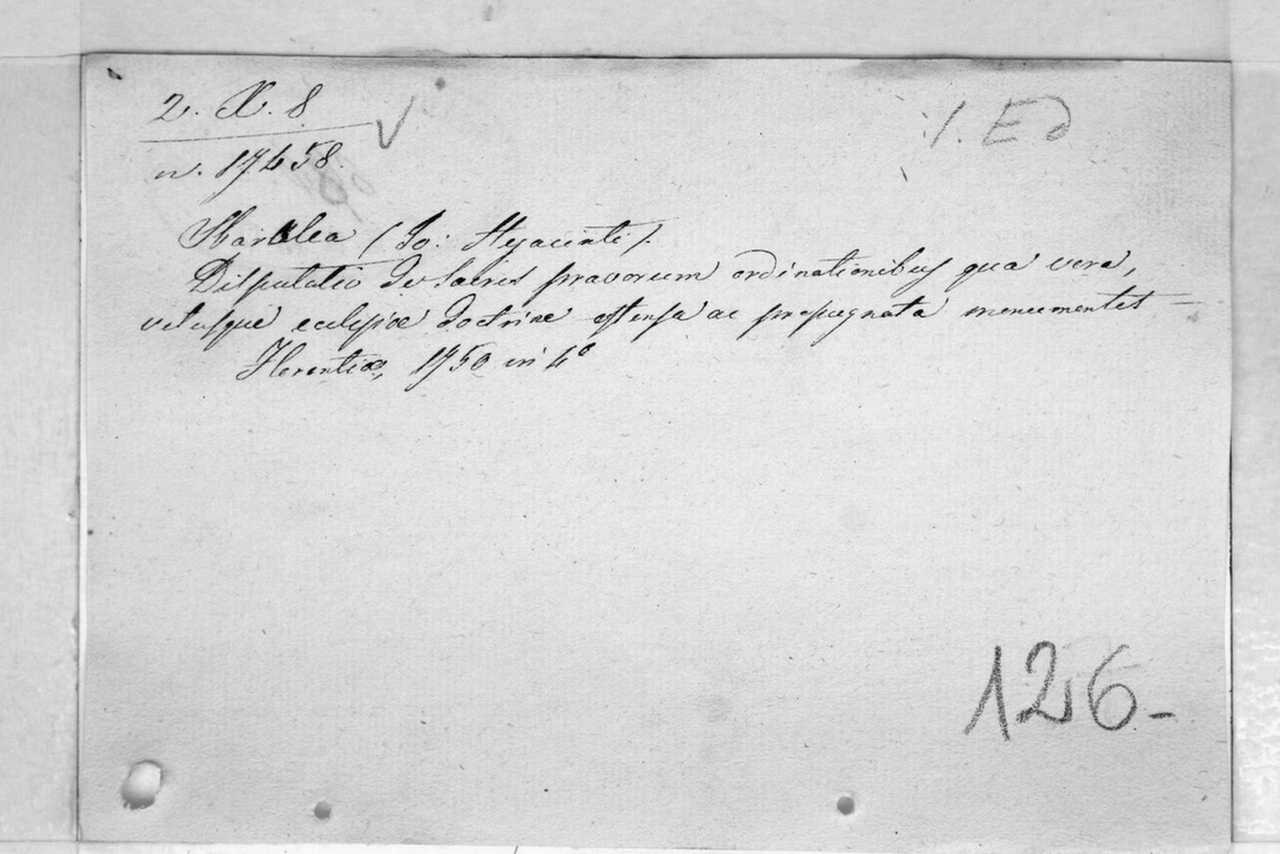 2. X. 8
n. 17458.
:/. Ed
Sbaralea (Jo: Hyacinti).
Disputatio de sacris pravorum ordinationibus qua vera,
vetusque ecclesiæ doctrina ostensa ac propugnata monumentet
Florentiæ, 1750 in 4º
126-